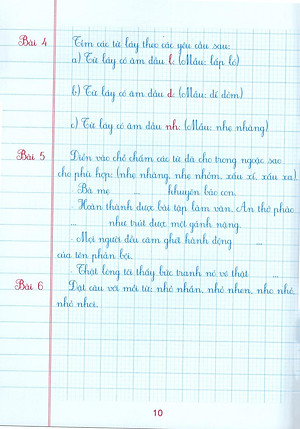 Bài 4 Tìm các từ láy theo các yêu cầu sau:
a) Từ láy có âm đầu l: (Mẫu: lấp ló)
b) Từ láy có âm đầu d: (Mẫu: dí dỏm)
c) Từ láy có âm đầu nh: (Mẫu: nhẹ nhàng)
Bài 5 Điền vào chỗ chấm các từ đã cho trong ngoặc sao
cho phù hợp: (nhẹ nhàng, nhẹ nhõm, xấu xí, xấu xa).
- Bà mẹ ... khuyên bảo con.
- Hoàn thành được bài tập làm văn, An thở phào
... như trút được một gánh nặng.
- Mọi người đều căm ghét hành động ...
của tên phản bội.
- Thật lòng tớ thấy bức tranh nó vẽ thật ...
Bài 6 Đặt câu với mỗi từ: nhỏ nhắn, nhỏ nhen, nho nhỏ,
nhỏ nhoi.
10